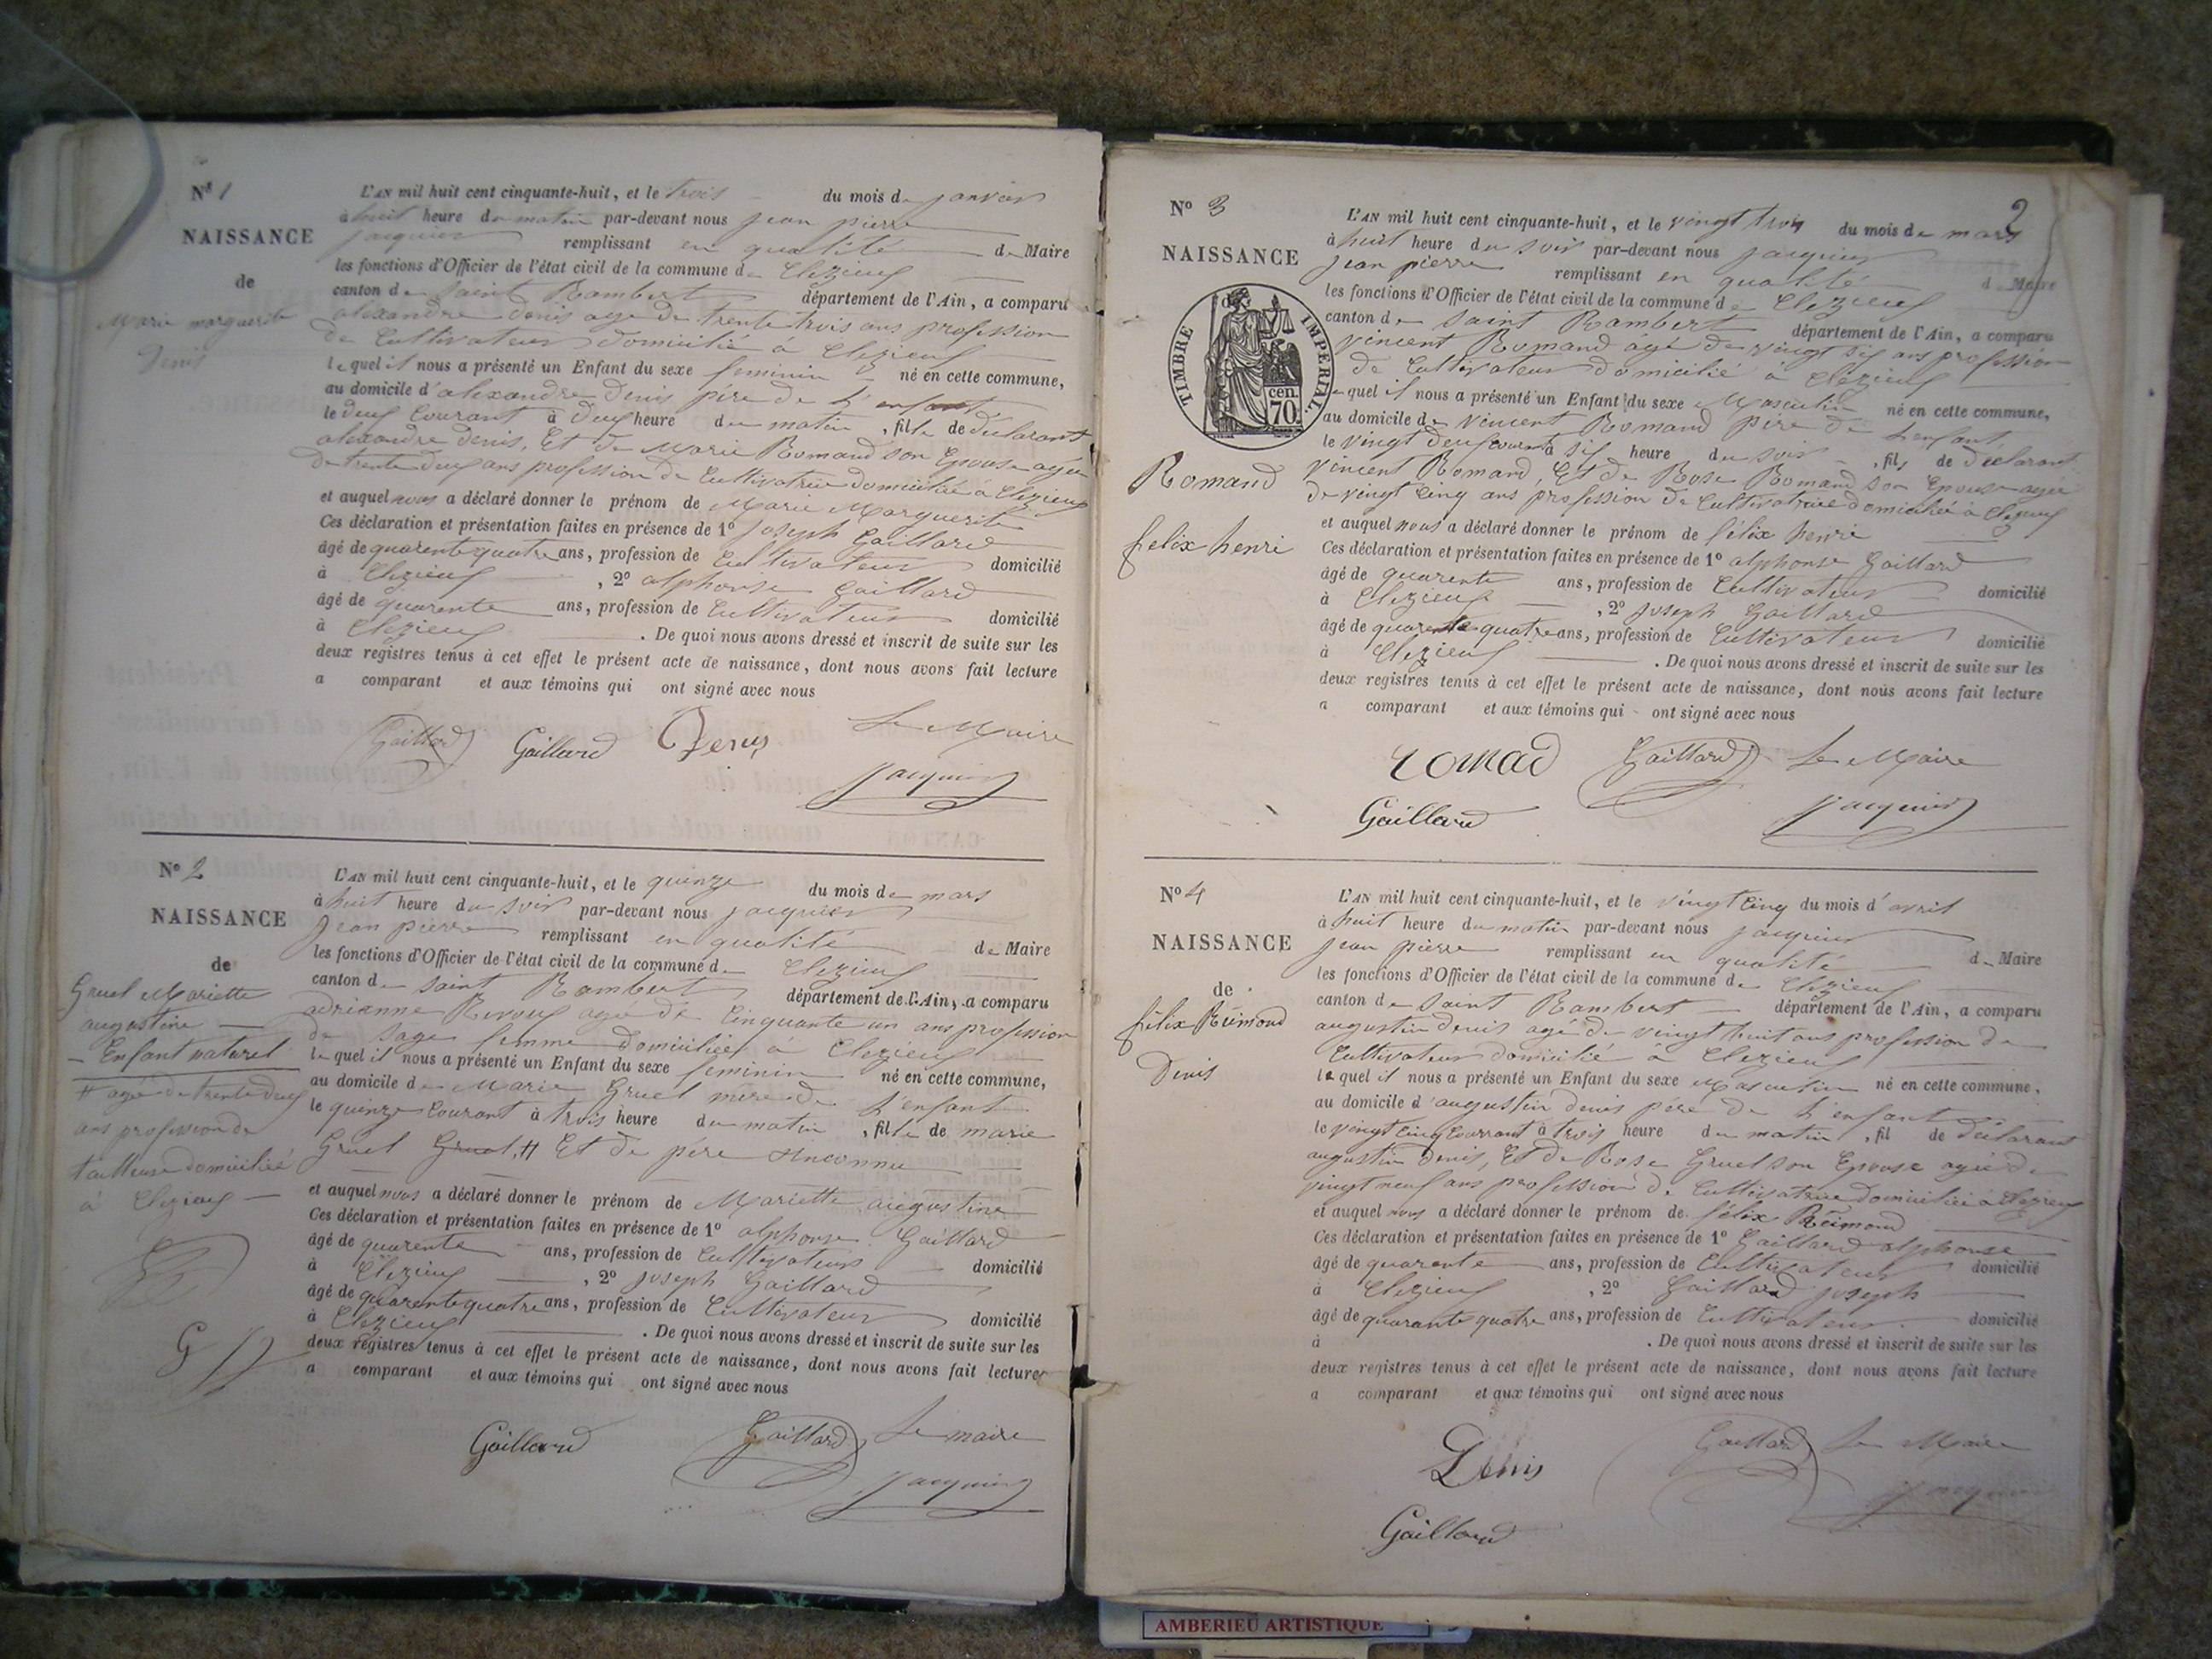 Nº 1
NAISSANCE
de
Marie marguerite
Denis
L'AN mil huit cent cinquante-huit, et le trois du mois de janvier
à huit heure du matin par-devant nous jean pierre
jacquier remplissant en qualité de Maire
les fonctions d'Officier de l'état civil de la commune de Clezieux
canton de Saint Rambert département de l'Ain, a comparu
alexandre denis age de trente trois ans profession
de Cultivateur domicilié à Clezieux
lequel il nous a présenté un Enfant du sexe feminin né en cette commune,
au domicile d'alexandre denis père de l'enfant
le deux Courant à deux heure du matin, fille de déclarant
alexandre denis, Et de Marie Romand son Epouse agée
de trente deux ans profession de Cultivatrice domiciliée à Clezieux
et auquel nous a déclaré donner le prénom de Marie Marguerite
Ces déclaration et présentation faites en présence de 1º Joseph Gaillard
âgé de quarente quatre ans, profession de Cultivateur domicilié
à Clezieux, 2º alphonse Gaillard
âgé de quarente ans, profession de Cultivateur domicilié
à Clezieux. De quoi nous avons dressé et inscrit de suite sur les
deux registres tenus à cet effet le présent acte de naissance, dont nous avons fait lecture
a comparant et aux témoins qui ont signé avec nous
Gaillard Gaillard Denis Le Maire
Jacquier
Nº 2
NAISSANCE
de
Gruel Mariette
augustine
Enfant naturel
# agé de trente deux
ans profession de
tailleuse domicilié
à Clezieux
G
L'AN mil huit cent cinquante-huit, et le quinze du mois de mars
à huit heure du soir par-devant nous jacquier
Jean pierre remplissant en qualité de Maire
les fonctions d'Officier de l'état civil de la commune de Clezieux
canton de Saint Rambert département de l'Ain, a comparu
adrianne Revoux age de Cinquante un ans profession
de Sage femme domiciliée à Clezieux
lequel il nous a présenté un Enfant du sexe feminin né en cette commune,
au domicile de Marie Gruel mere de l'enfant
le quinze Courant à trois heure du matin, fille de marie
Gruel Gruel, # Et de père Inconnu
et auquel nous a déclaré donner le prénom de Mariette augustine
Ces déclaration et présentation faites en présence de 1º alphonse Gaillard
âgé de quarente ans, profession de Cultivateur domicilié
à Clezieux, 2º Joseph Gaillard
âgé de quarente quatre ans, profession de Cultivateur domicilié
à Clezieux. De quoi nous avons dressé et inscrit de suite sur les
deux registres tenus à cet effet le présent acte de naissance, dont nous avons fait lecture
a comparant et aux témoins qui ont signé avec nous
Gaillard Gaillard Le maire
Jacquier
2
Nº 3
NAISSANCE
TIMBRE IMPERIAL
cen.
70
Romand
felix henri
L'AN mil huit cent cinquante-huit, et le vingt trois du mois de mars
à huit heure du soir par-devant nous jacquier
Jean pierre remplissant en qualité de Maire
les fonctions d'Officier de l'état civil de la commune de Clezieux
canton de Saint Rambert département de l'Ain, a comparu
vincent Romand agé de vingt six ans profession
de Cultivateur domicilié à Clezieux
lequel il nous a présenté un Enfant du sexe Masculin né en cette commune,
au domicile de Vincent Romand père de l'enfant
le vingt deux courant à six heure du soir, fils de déclarant
Vincent Romand, Et de Rose Romand son Epouse agée
de vingt cinq ans profession de Cultivatrice domiciliée à Clezieux
et auquel nous a déclaré donner le prénom de félix henri
Ces déclaration et présentation faites en présence de 1º alphonse Gaillard
âgé de quarente ans, profession de Cultivateur domicilié
à Clezieux, 2º Joseph Gaillard
âgé de quarente quatre ans, profession de Cultivateur domicilié
à Clezieux. De quoi nous avons dressé et inscrit de suite sur les
deux registres tenus à cet effet le présent acte de naissance, dont nous avons fait lecture
a comparant et aux témoins qui ont signé avec nous
romad Gaillard Le Maire
Gaillard Jacquier
Nº 4
NAISSANCE
de
félix Réimond
Denis
L'AN mil huit cent cinquante-huit, et le vingt cinq du mois d'avril
à huit heure du matin par-devant nous jacquier
Jean pierre remplissant en qualité de Maire
les fonctions d'Officier de l'état civil de la commune de Clezieux
canton de Saint Rambert département de l'Ain, a comparu
augustin denis agé de vingt huit ans profession de
Cultivateur domicilié à Clezieux
lequel il nous a présenté un Enfant du sexe Masculin né en cette commune,
au domicile d'augustin denis père de l'enfant
le vingt cinq Courrant à trois heure du matin, fil de déclarant
augustin denis, Et de Rose Gruel son Epouse agée de
vingt neuf ans profession de Cultivatrice domiciliée à Clezieux
et auquel nous a déclaré donner le prénom de félix Réimond
Ces déclaration et présentation faites en présence de 1º Gaillard alphonse
âgé de quarente ans, profession de Cultivateur domicilié
à Clezieux, 2º Gaillard joseph
âgé de quarante quatre ans, profession de Cultivateur domicilié
à . De quoi nous avons dressé et inscrit de suite sur les
deux registres tenus à cet effet le présent acte de naissance, dont nous avons fait lecture
a comparant et aux témoins qui ont signé avec nous
Denis Gaillard Le Maire
Gaillard Jacquier
AMBERIEU ARTISTIQUE